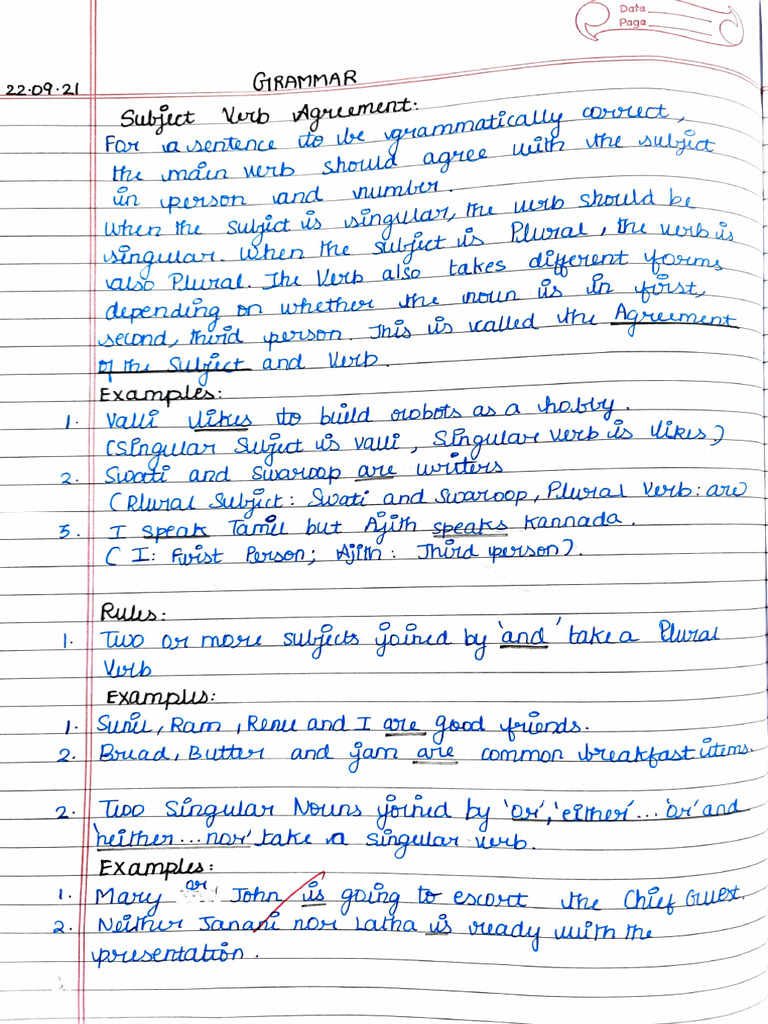 Date
Page
GRAMMAR
22.09.21
Subject Verb Agreement:
For a sentence to be grammatically correct,
the main verb should agree with the subject
in person and number.
When the subject is singular, the verb should be
singular. When the subject is Plural, the verb is
also Plural. The Verb also takes different forms
depending on whether the noun is in first,
second, third person. This is called the Agreement
of the Subject and Verb.
Examples:
1. Valli likes to build robots as a hobby.
(Singular Subject is Valli, Singular Verb is likes)
2. Swati and Swaroop are writers
(Plural Subject: Swati and Swaroop, Plural Verb: are
3. I speak Tamil but Ajith speaks Kannada.
(I: First Person; Ajith: Third person).
Rules:
1. Two or more subjects joined by 'and' take a Plural
Verb
Examples:
1. Sunil, Ram, Renu and I are good friends.
2. Bread, Butter and jam are common breakfast items.
2. Two Singular Nouns joined by 'or', 'either'...'or' and
'neither...nor' take a singular verb.
Examples:
1. Mary or John is going to escort the Chief Guest.
2. Neither Janani nor Latha is ready with the
presentation.